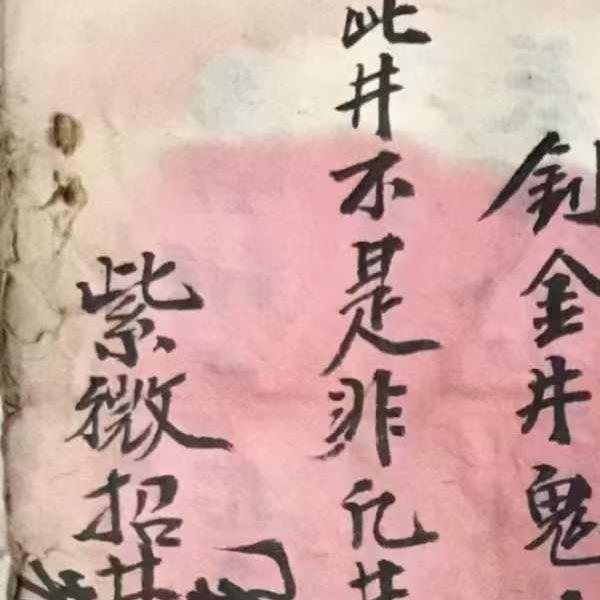 釗金井鬼
此井不是非凡井
紫微招井